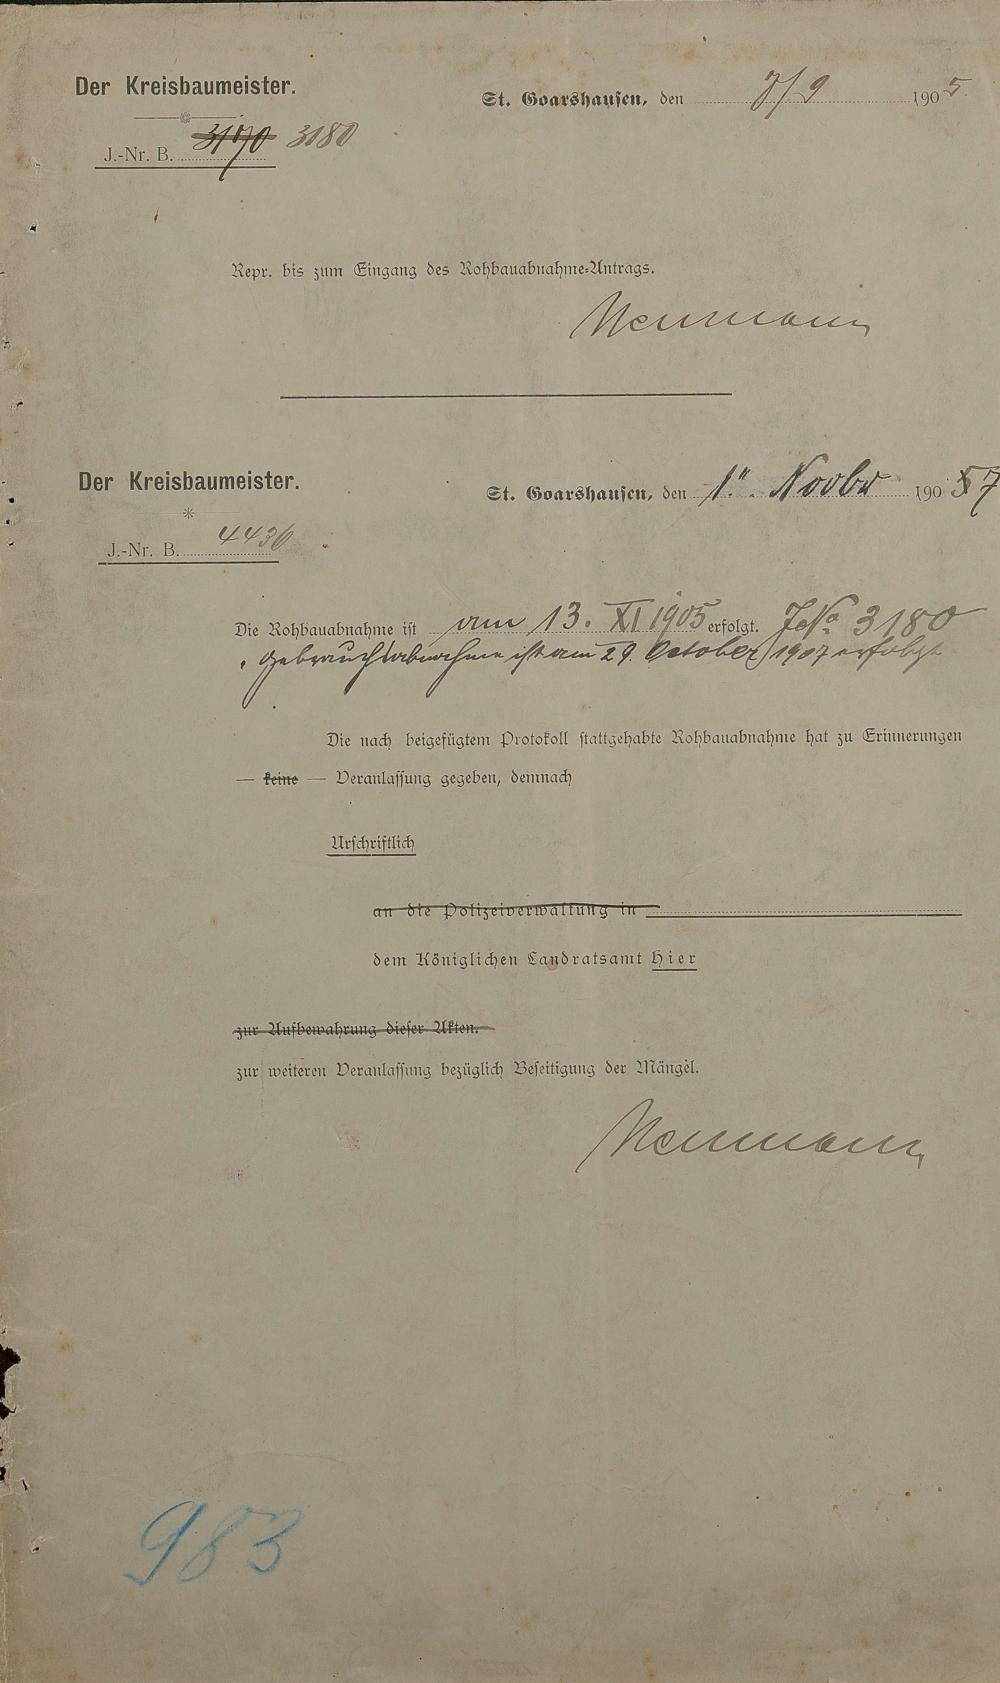 Der Kreisbaumeister.
St. Goarshausen, den 7/9 1905
J.-Nr. B. 3170 3180
Repr. bis zum Eingang des Rohbauabnahme-Antrags.
Neumann
Der Kreisbaumeister.
St. Goarshausen, den 1ten Novbr 190 5 7
J.-Nr. B. 4436
Die Rohbauabnahme ist am 13. XI 1905 erfolgt. JNo. 3180
Gebrauchsabnahme ist am 29. October 1907 erfolgt
Die nach beigefügtem Protokoll stattgehabte Rohbauabnahme hat zu Erinnerungen
— keine — Veranlassung gegeben, demnach
Urschriftlich
an die Polizeiverwaltung in
dem Königlichen Landratsamt Hier
zur Aufbewahrung dieser Akten.
zur weiteren Veranlassung bezüglich Beseitigung der Mängel.
Neumann
983